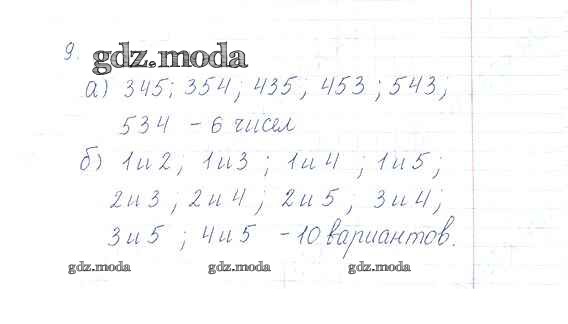 9. gdz.moda
а) 345; 354; 435; 453; 543;
534 - 6 чисел
б) 1 и 2; 1 и 3; 1 и 4; 1 и 5;
2 и 3; 2 и 4; 2 и 5, 3 и 4;
3 и 5; 4 и 5 - 10 вариантов.
gdz.moda gdz.moda gdz.moda